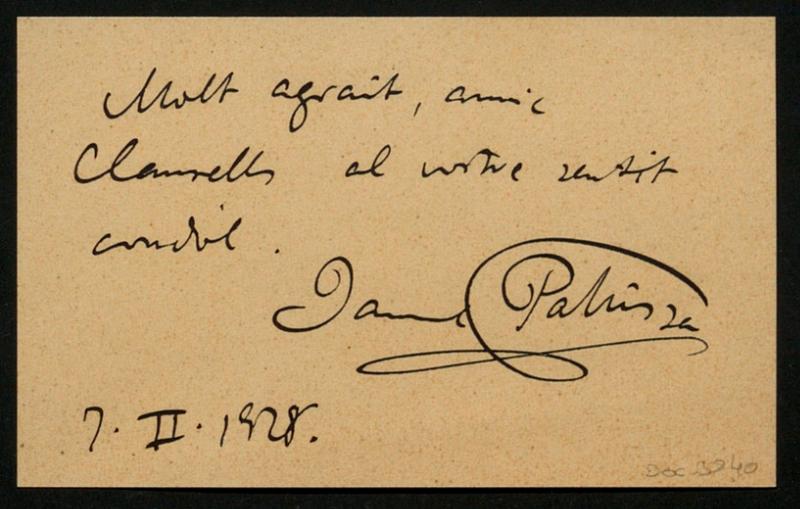 Molt agrait, amic
Clausells al vostre sentit
condol.
Jaume Pahissa
7. II. 1928.
Doc 3240